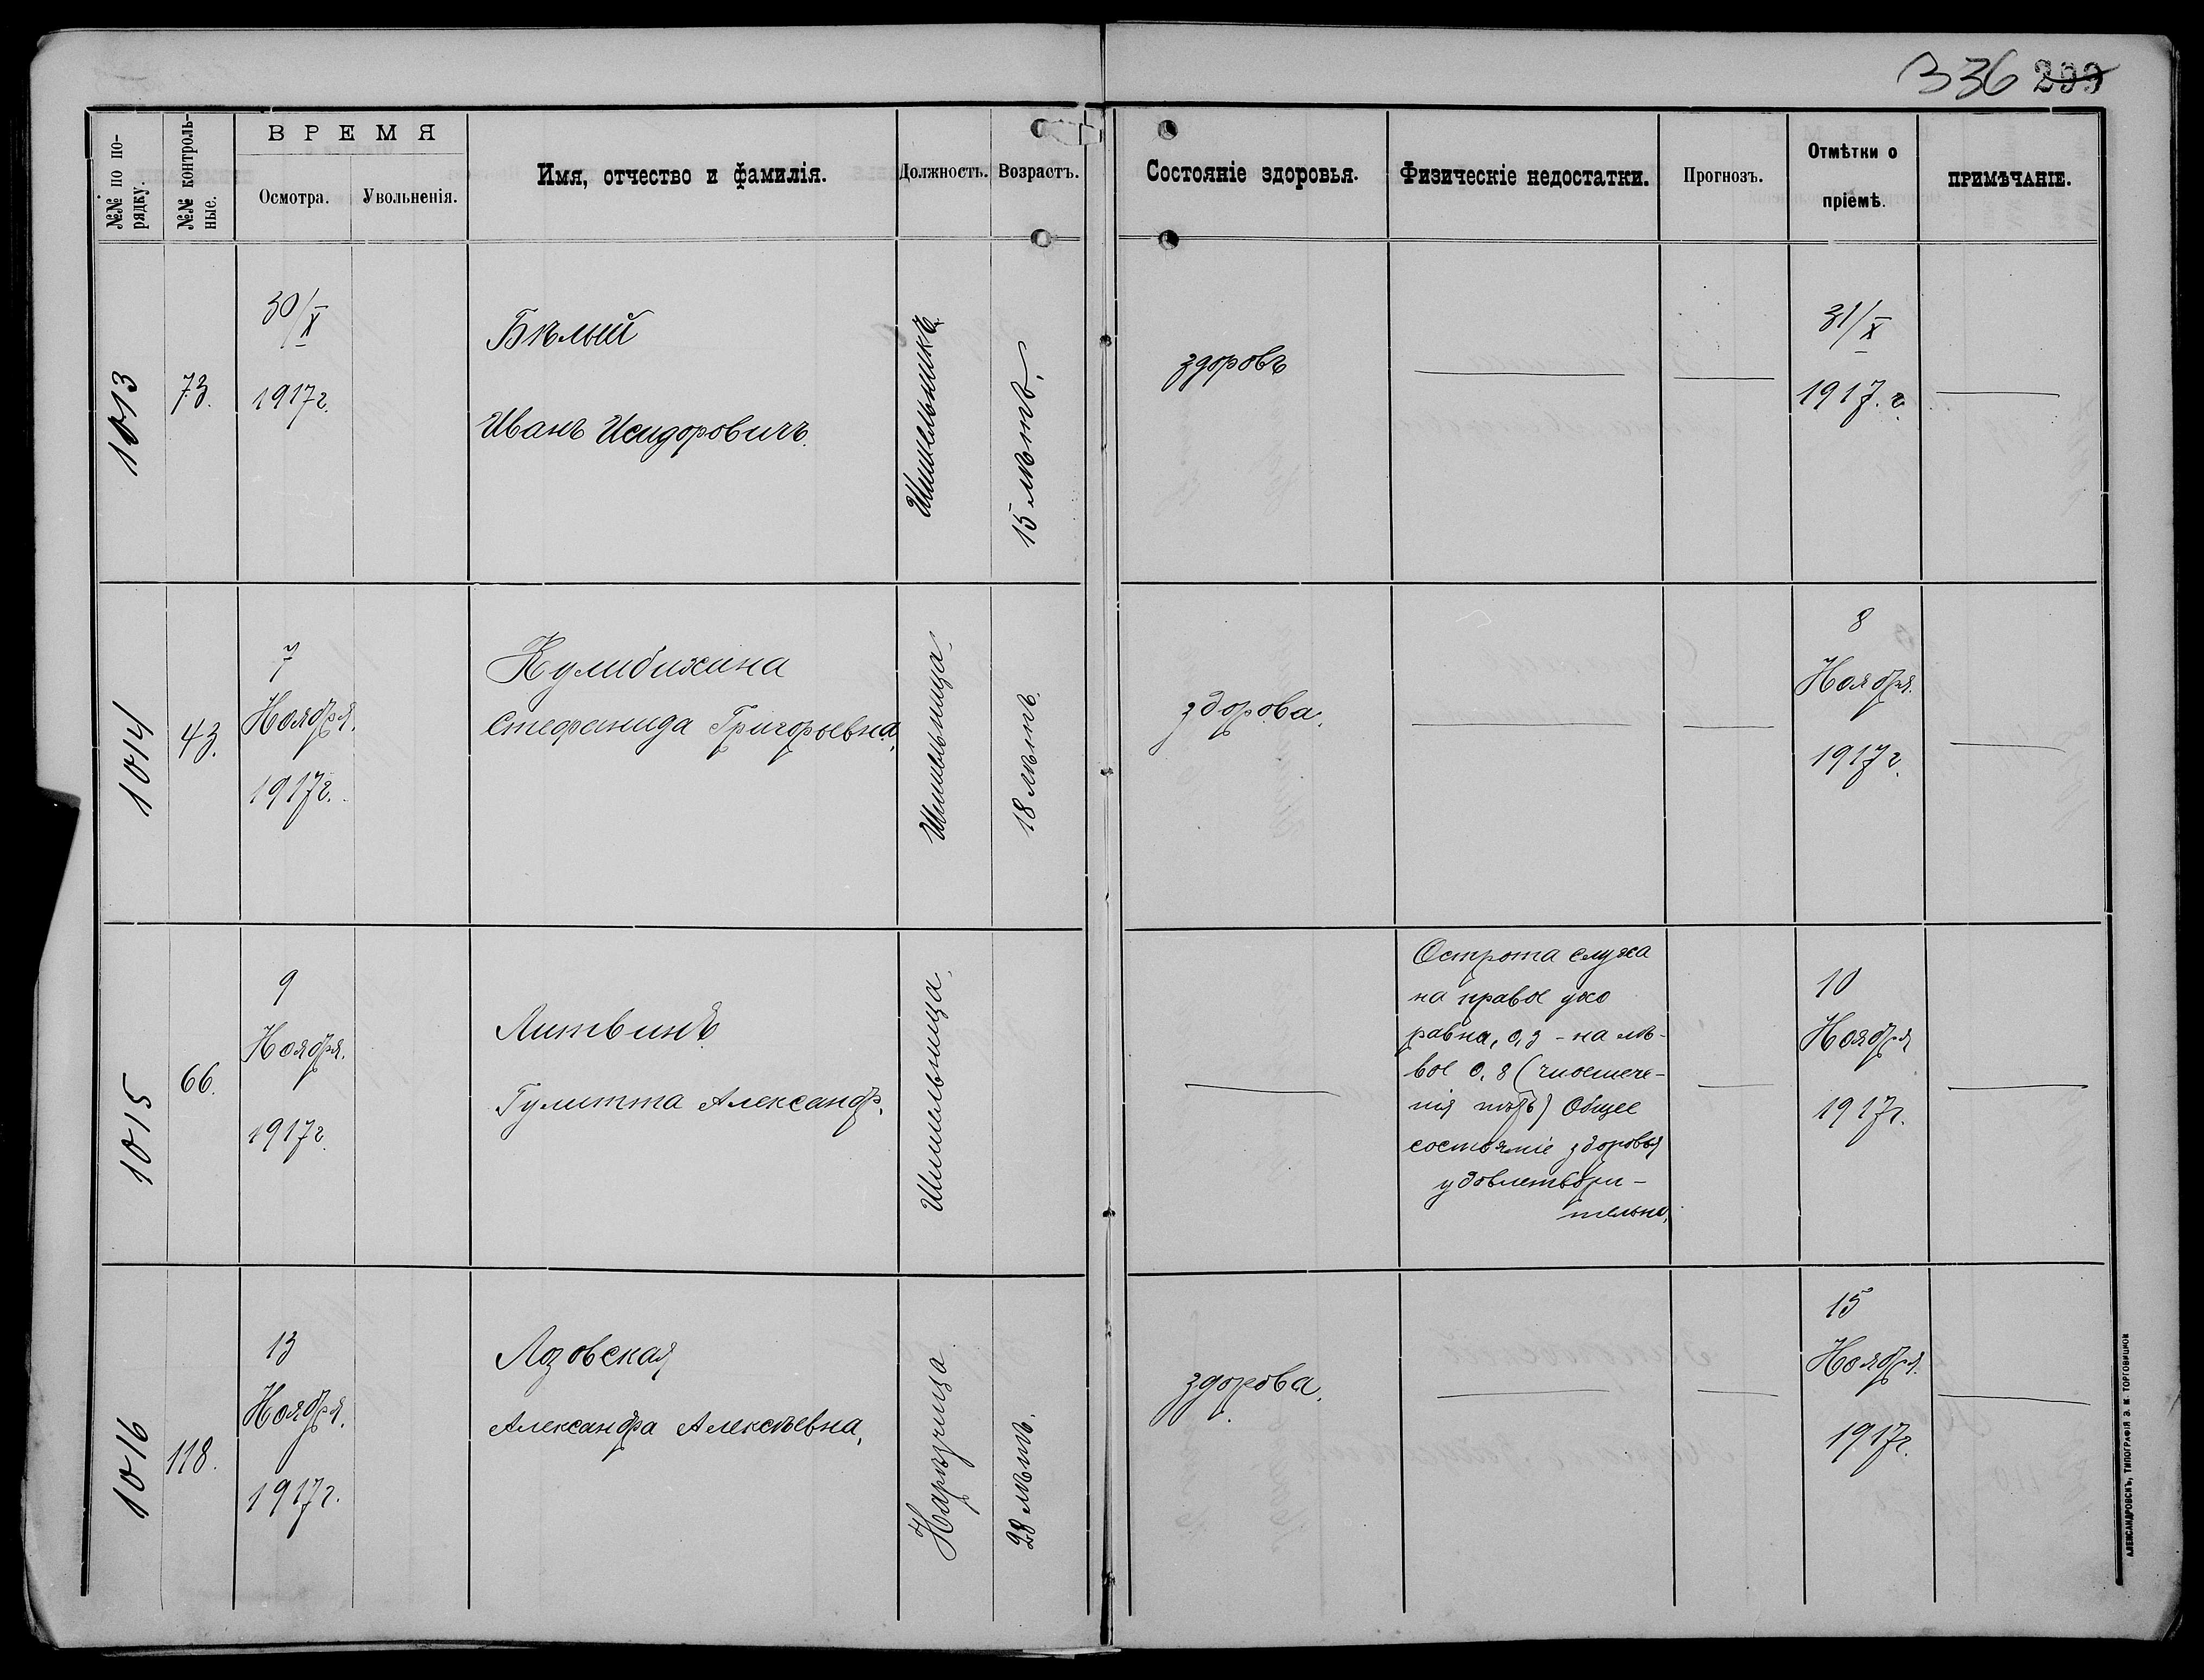 336 299
№№ по по-
рядку.
№№ контроль-
ные.
ВРЕМЯ
Осмотра.
Увольненія.
Имя, отчество и фамилія.
Должность.
Возрастъ.
Состояніе здоровья.
Физическіе недостатки.
Прогнозъ.
Отмѣтки о
пріемѣ.
ПРИМѢЧАНІЕ.
1013
73.
30/X
1917 г.
Бѣлый
Иванъ Исидоровичъ.
Шпильникъ.
15 лѣтъ.
здоровъ
31/X
1917. г.
1014
43.
7
Ноября.
1917 г.
Кулибихина
Стефанида Григорьевна.
Шпильница
18 лѣтъ.
здорова.
8
Ноября.
1917 г.
1015
66.
9
Ноября.
1917 г.
Литвинъ
Гулитта Александр.
Шпильница.
Острота слуха
на правое ухо
равна, 0,3 - на лѣ-
вое 0,8 (
) Общее
состояніе здоровья
удовлетвори-
тельно.
10
Ноября
1917 г.
1016
118.
13
Ноября.
1917 г.
Лозовская
Александра Алексѣевна.
Нарѣзчица.
28 лѣтъ.
здорова.
15
Ноября.
1917 г.
АЛЕКСАНДРОВСКЪ, ТИПОГРАФІЯ Э. К. ТОРГОВИЦКОЙ